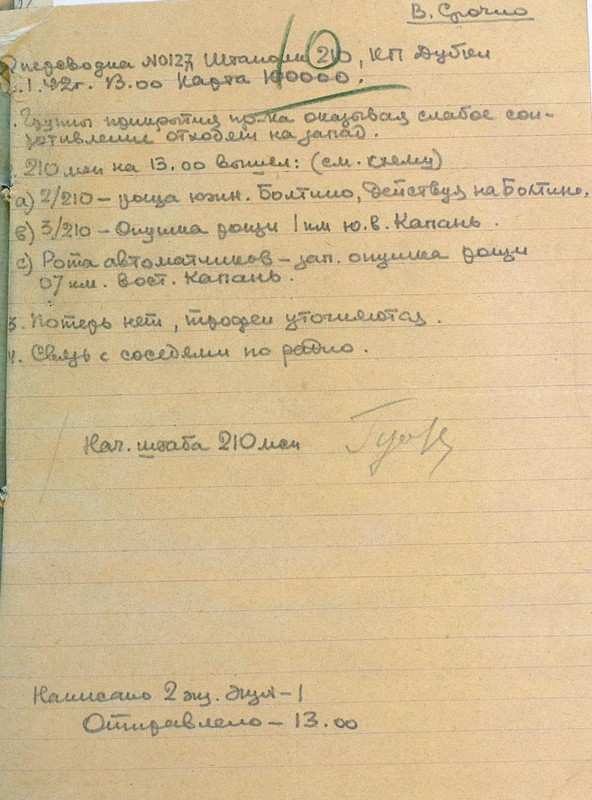 В. Срочно
Оперсводка №0127 Штамсп 210, КП Дубки
.1.42г. 13.00 Карта 100000.
. Группы прикрытия пр-ка оказывая слабое соп-
ротивление отходят на запад.
. 210 мсп на 13.00 вышел: (см. схему)
а) 2/210 – роща южн. Болтино, действуя на Болтино.
в) 3/210 – Опушка рощи 1 км ю.в. Капань.
с) Рота автоматчиков – зап. опушка рощи
07 км. вост. Капань.
3. Потерь нет, трофеи уточняются.
4. Связь с соседями по радио.
Нач. штаба 210 мсп
Написано 2 экз. экз – 1
Отправлено – 13.00